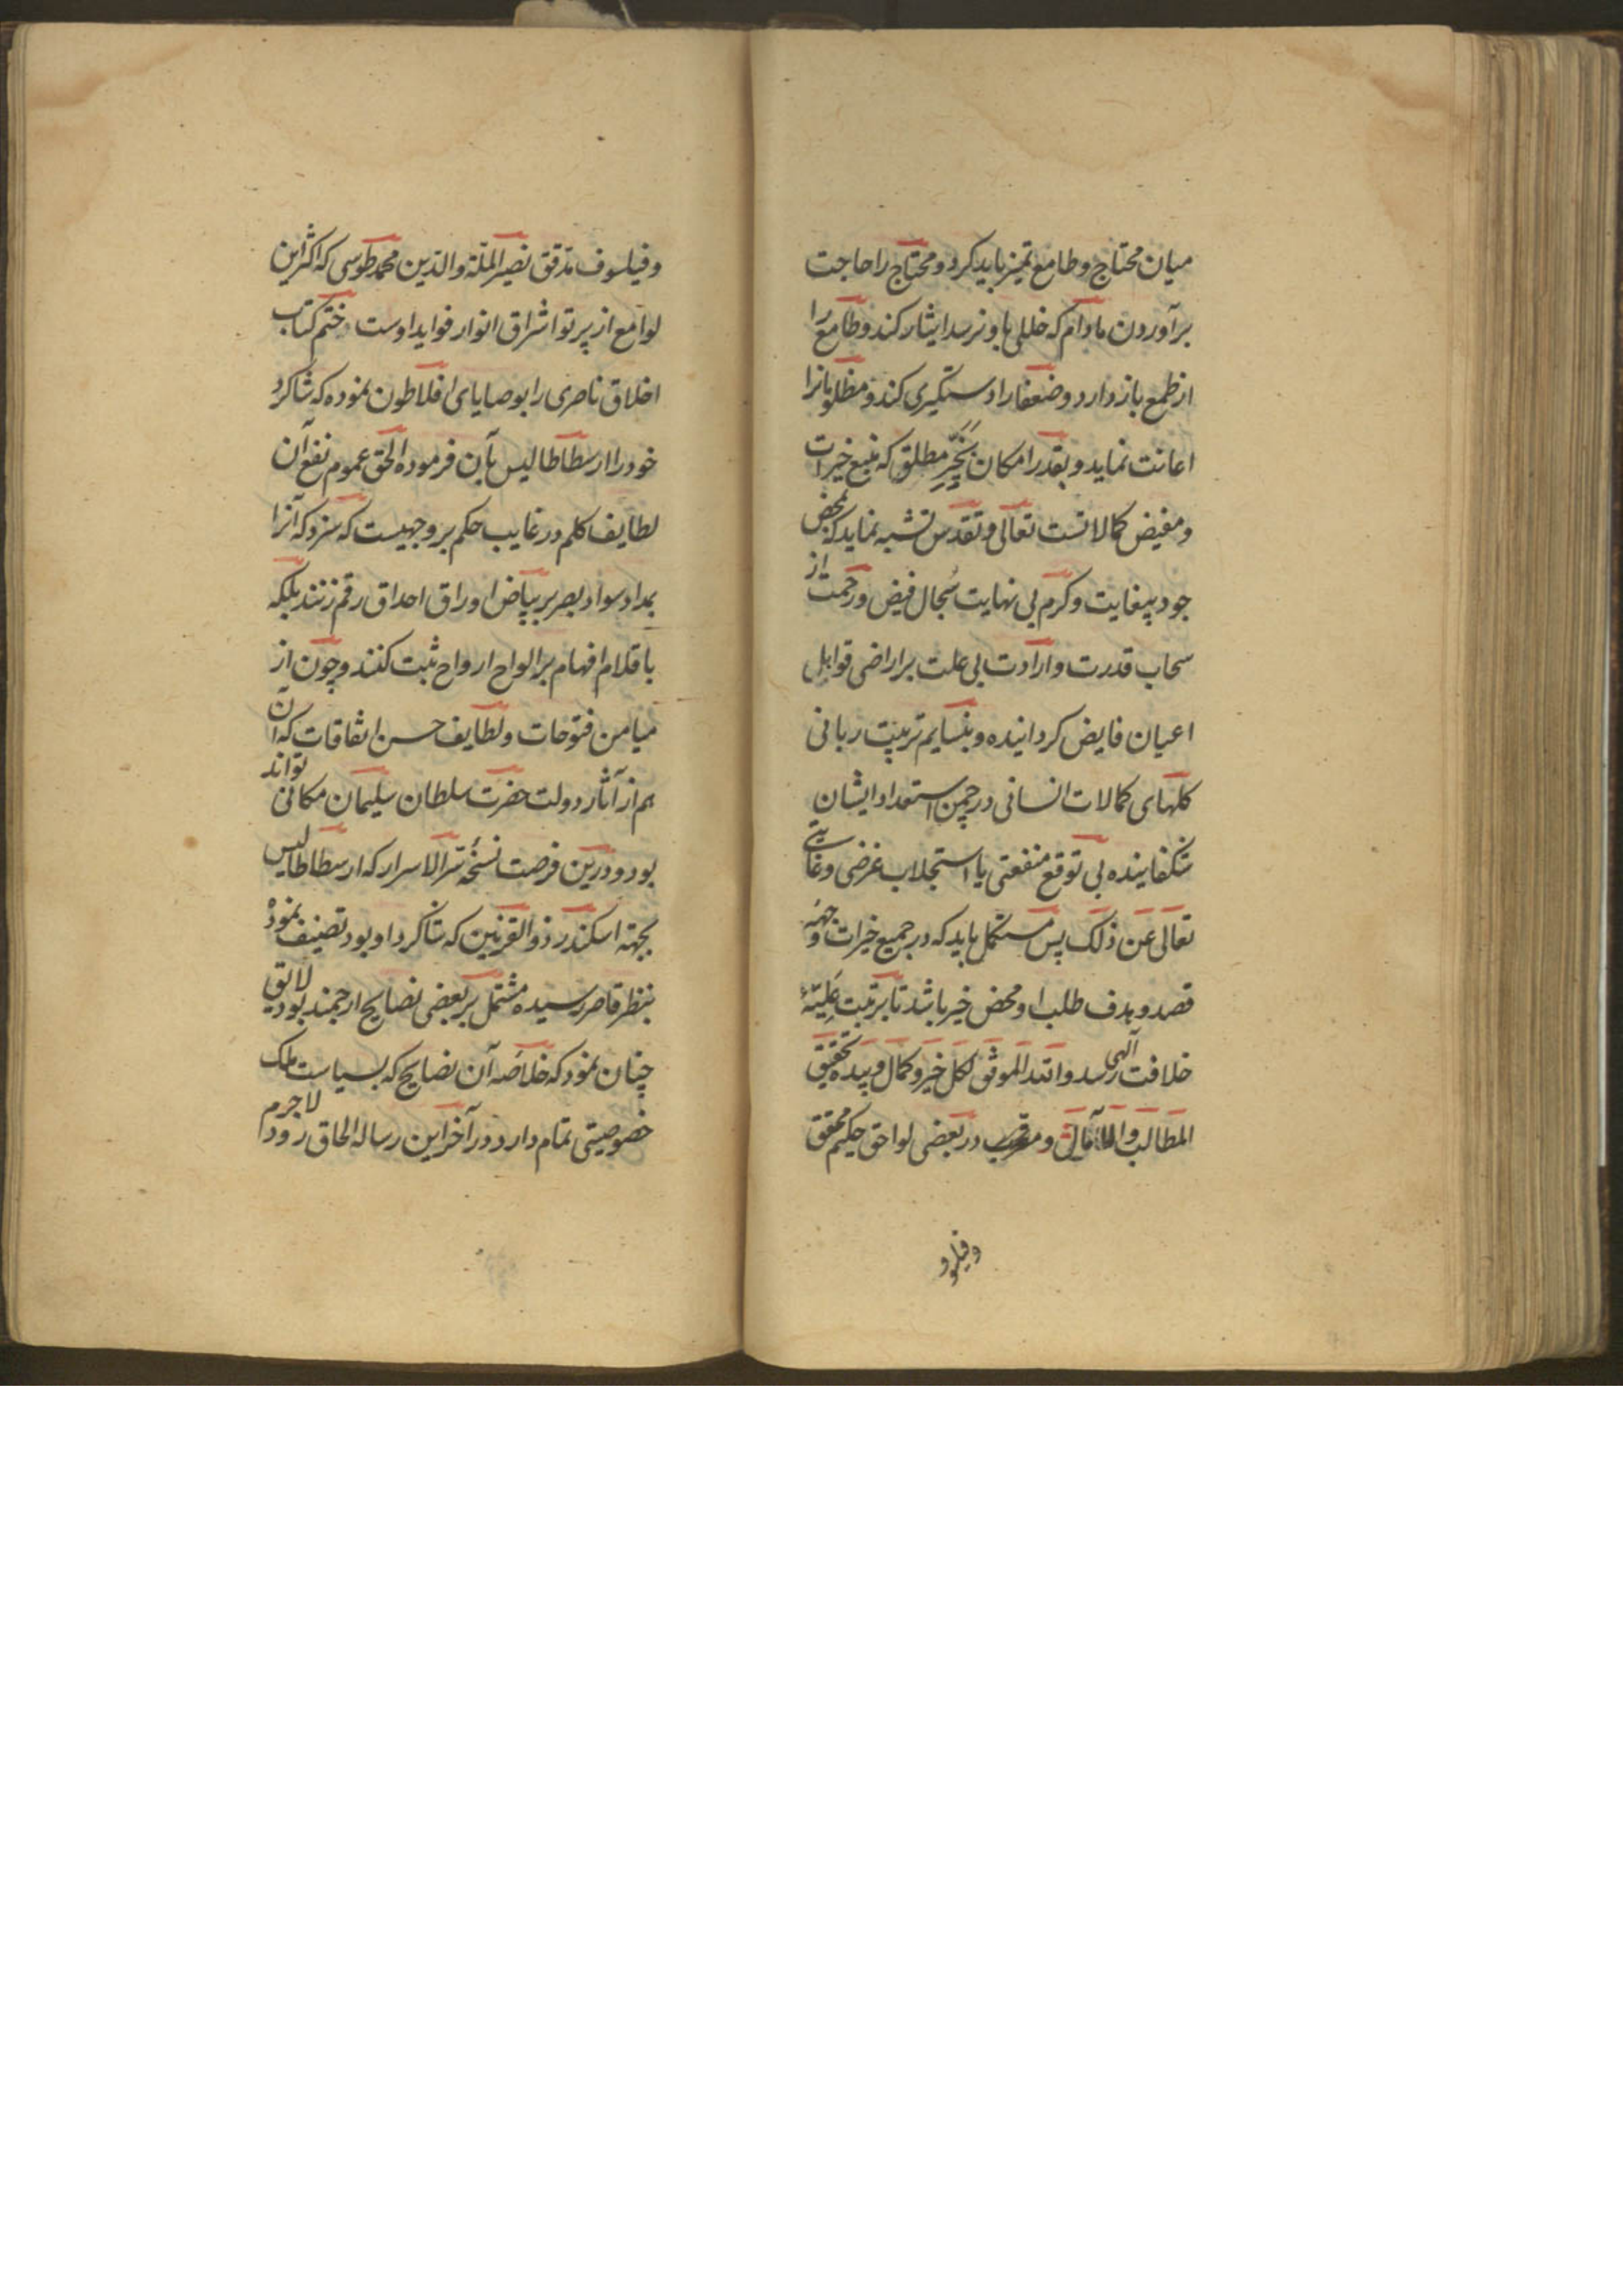 میان محتاج و طامع تمیز باید کرد و محتاج را حاجت
برآوردن مادام که خللی باو نرسد ایثار کند و طامع را
از طمع باز دارد و ضعفا را دستگیری کند و مظلومانرا
اعانت نماید و بقدر امکان بخیر مطلق که منبع خیرات
و مفیض کمالاتست تعالی و تقدس تشبه نماید که بمحض
جود بیغایت و کرم بی نهایت سجال فیض و رحمت از
سحاب قدرت و ارادت بی علت بر اراضی قوابل
اعیان فایض کردانیده و بنسایم تربیت ربانی
کلهای کمالات انسانی در چمن استعداد ایشان
شکفانیده بی توقع منفعتی یا استجلاب غرضی و غایتی
تعالی عن ذلک پس مستکمل باید که در جمیع خیرات وجهه
قصد و هدف طلب او محض خیر باشد تا بمرتبت علیه
خلافت الهی رسد والله الموفق لکل خیر و کمال و بیده تحقیق
المطالب والآمال و در بعضی لواحق حکیم محقق
وفیلسو
و فیلسوف مدقق نصیر الملة والدین محمد طوسی که اکثر این
لوامع از پرتو اشراق انوار فواید اوست ختم کتاب
اخلاق ناصری را بوصایای افلاطون نموده که شاکرد
خود را ارسطاطالیس بآن فرموده الحق عموم نفع آن
لطایف کلم و رغایب حکم بر وجهیست که سزد که آنرا
بمداد سواد بصر بر بیاض اوراق احداق رقم زنند بلکه
باقلام افهام بر الواح ارواح ثبت کنند و چون از
میامن فتوحات و لطایف حسن اتفاقات که آن
هم از آثار دولت حضرت سلطان سلیمان مکانی تواند
بود و درین فرصت نسخه سر الاسرار که ارسطاطالیس
بجهته اسکندر ذو القرنین که شاکرد او بود تصنیف نموده
بنظر قاصر رسیده مشتمل بر بعضی نصایح ارجمند بود لایق
چنان نمود که خلاصه آن نصایح که بسیاست ملک
خصوصیتی تمام دارد در آخر این رساله الحاق رود لاجرم